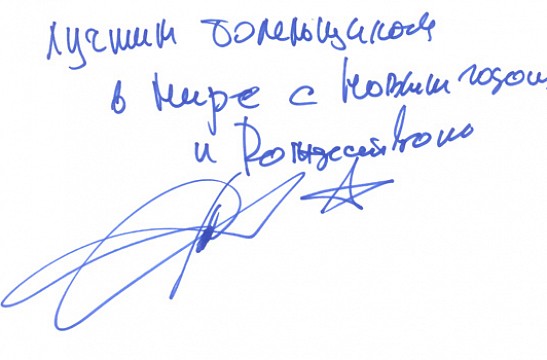 лучшим болельщикам
в мире с Новым годом
и Рождеством